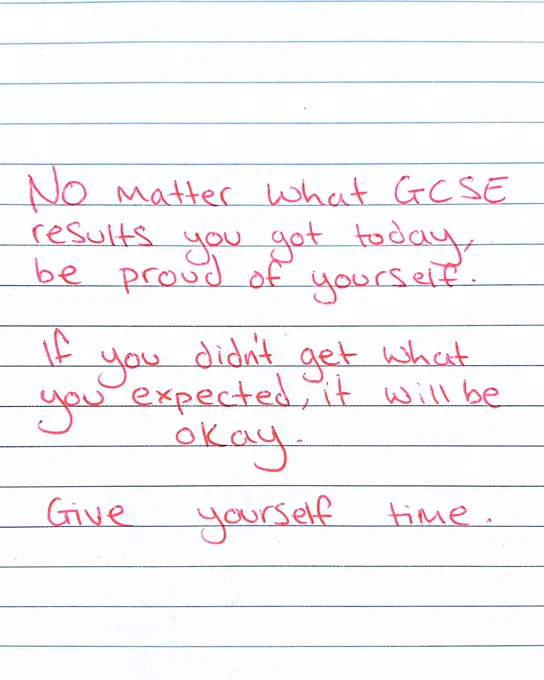 No matter what GCSE
results you got today,
be proud of yourself.
If you didn't get what
you expected, it will be
okay.
Give yourself time.